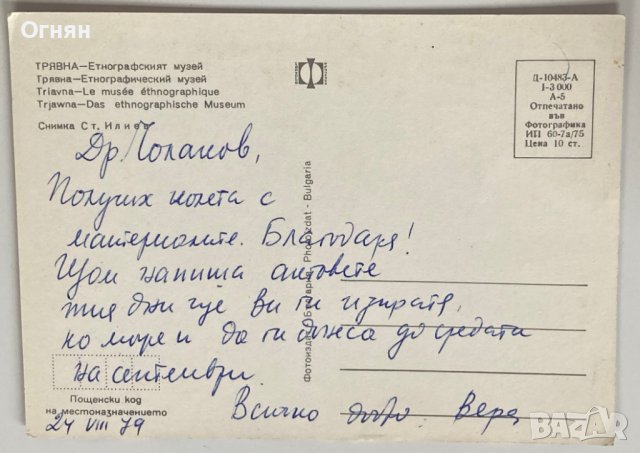 Огнян
ТРЯВНА—Етнографският музей
Трявна—Етнографический музей
Triavna—Le musée éthnographique
Trjawna—Das ethnographische Museum
Снимка Ст. Илиев
Д-10483-А
1-3 000
А-5
Отпечатано
във
Фотографика
ИП 60-7а/75
Цена 10 ст.
Др Чолаков,
Получих колета с
материалите. Благодаря!
Щом напиша
тия дни ще Ви ги изпратя,
но може и да ги до средата
на септември.
Всичко добро. Вера
Пощенски код
на местоназначението
24 VIII 79
Фотоиздат България Photoizdat - Bulgaria
BAZAR